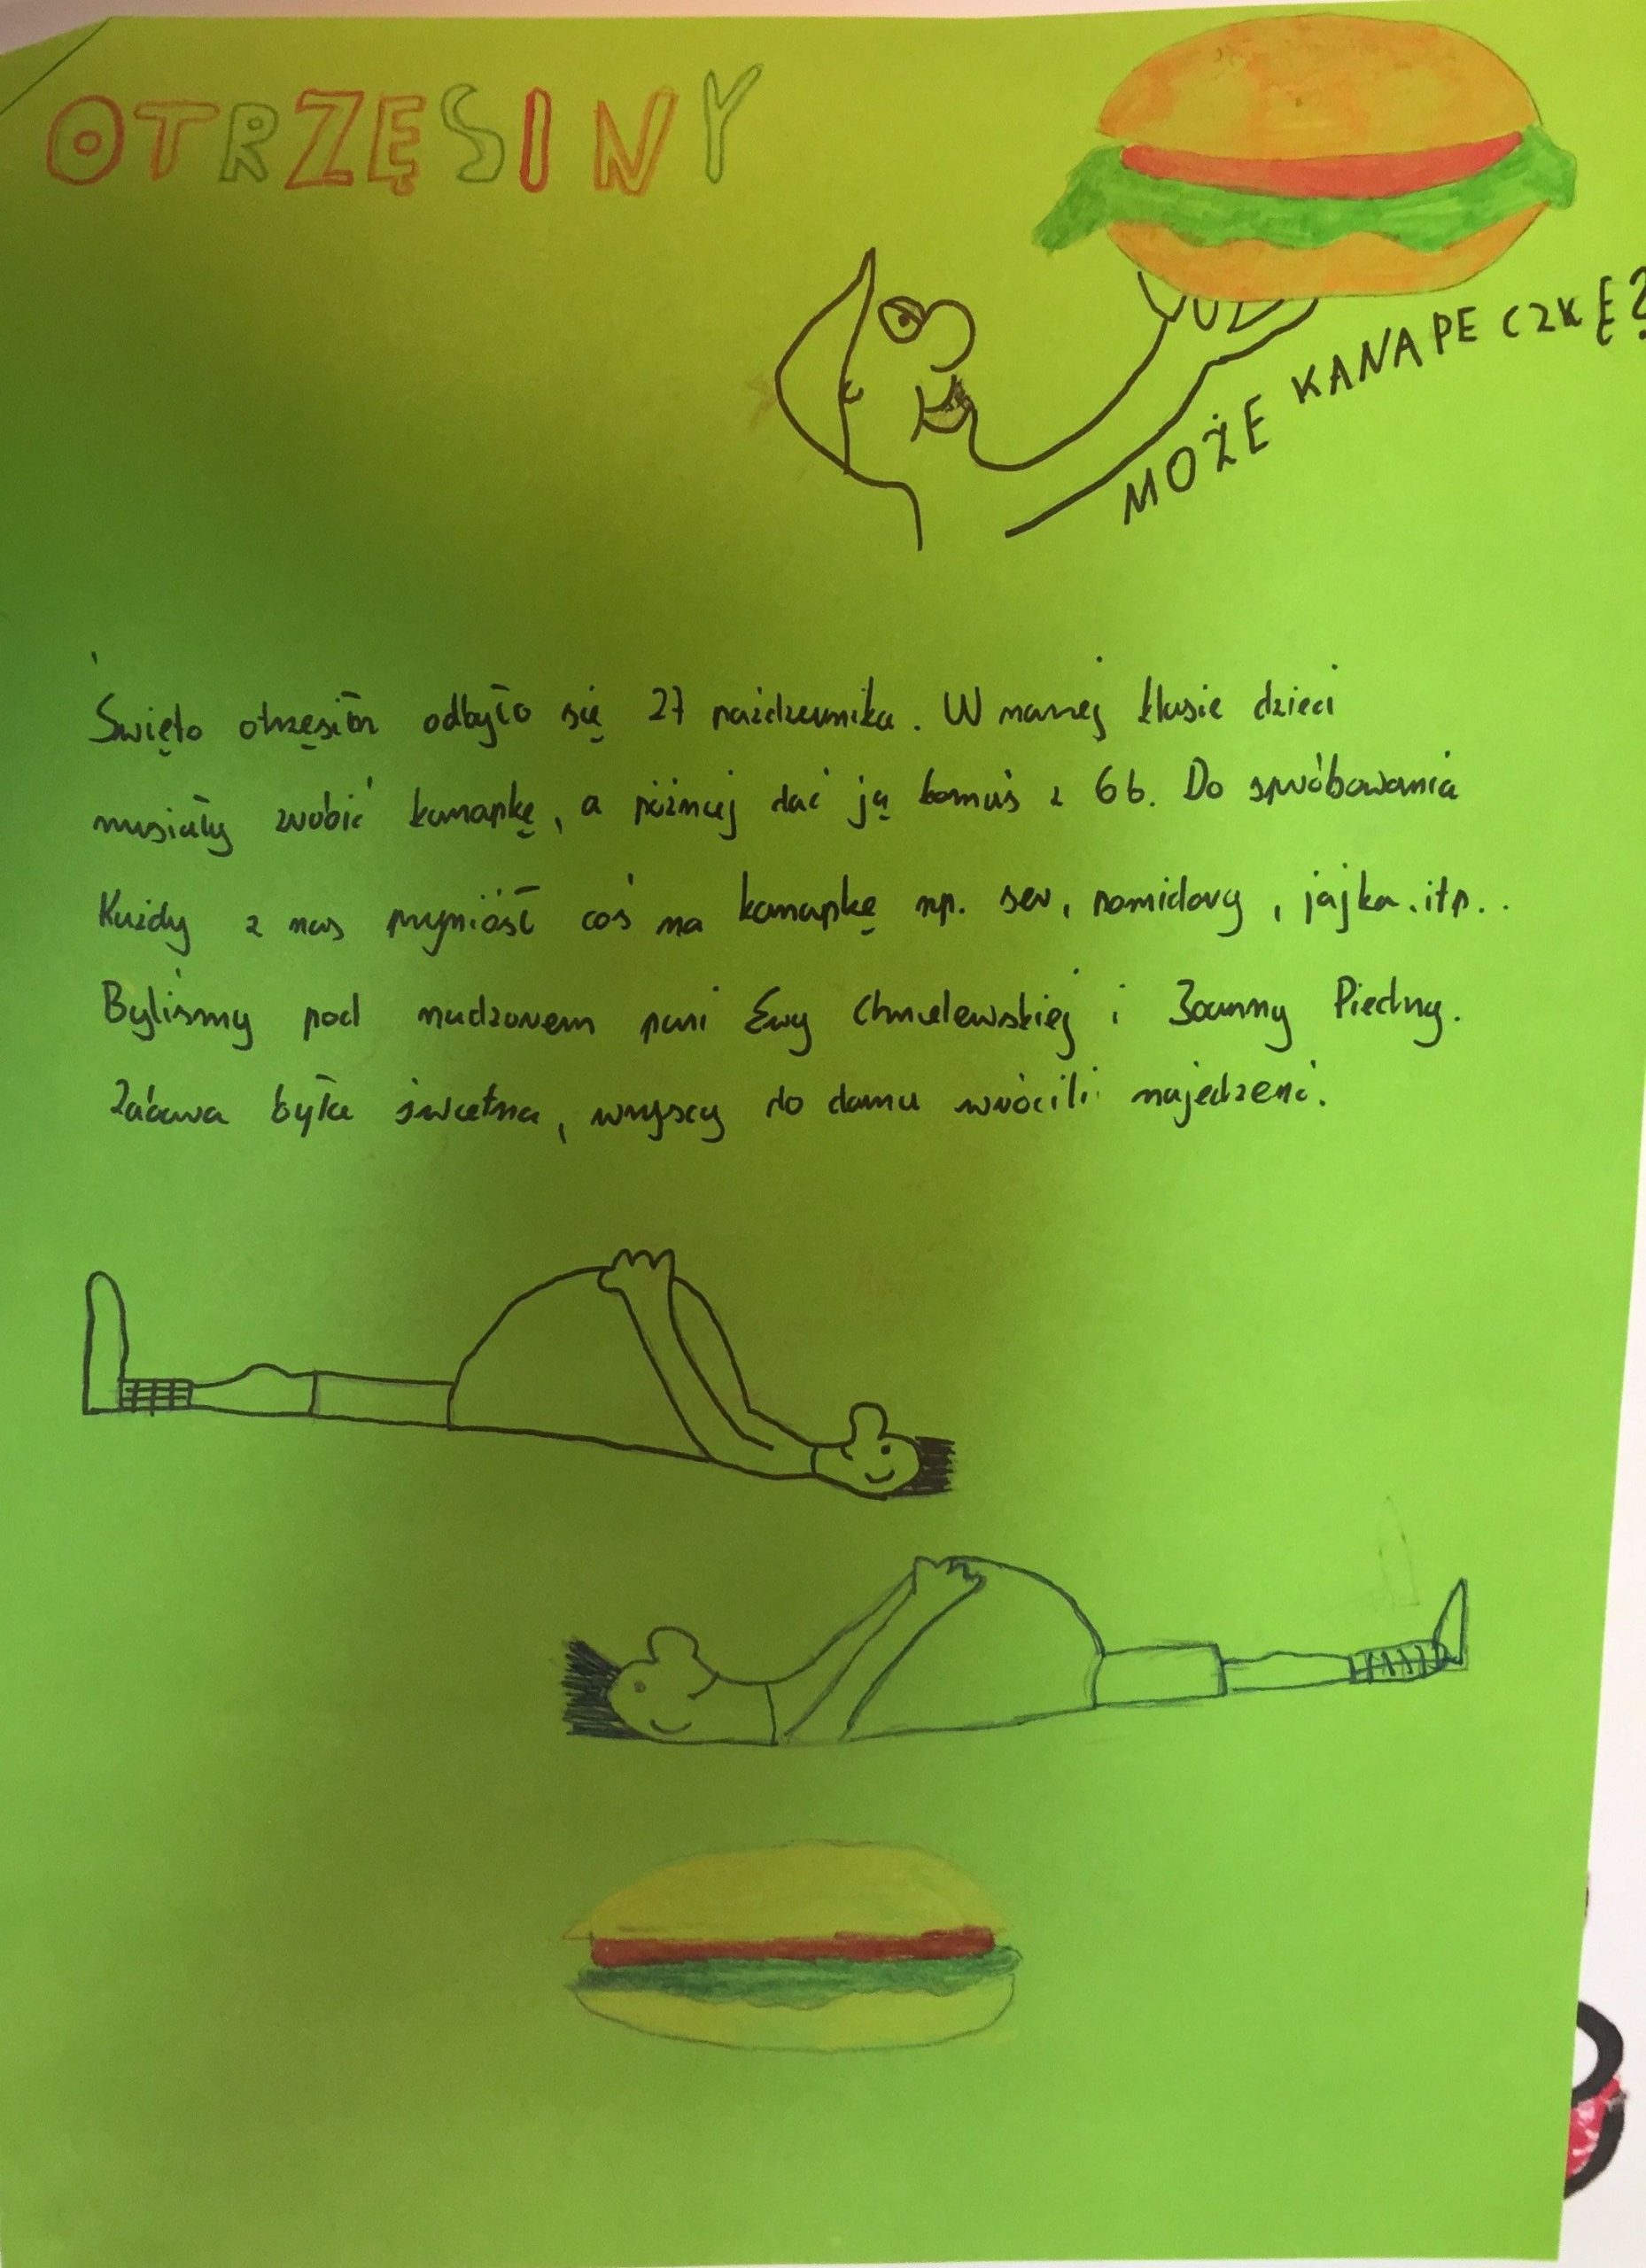 OTRZĘSINY
MOŻE KANAPECZKĘ?
Święto otrzęsin odbyło się 27 października. W naszej klasie dzieci
musiały zrobić kanapkę, a później dać ją komuś z 6b. Do spróbowania
Każdy z nas przyniósł coś na kanapkę np. ser, pomidory, jajka.itp..
Byliśmy pod nadzorem pani Ewy Chmielewskiej i Joanny Piedny.
Zabawa była świetna, wszyscy do domu wrócili najedzeni.